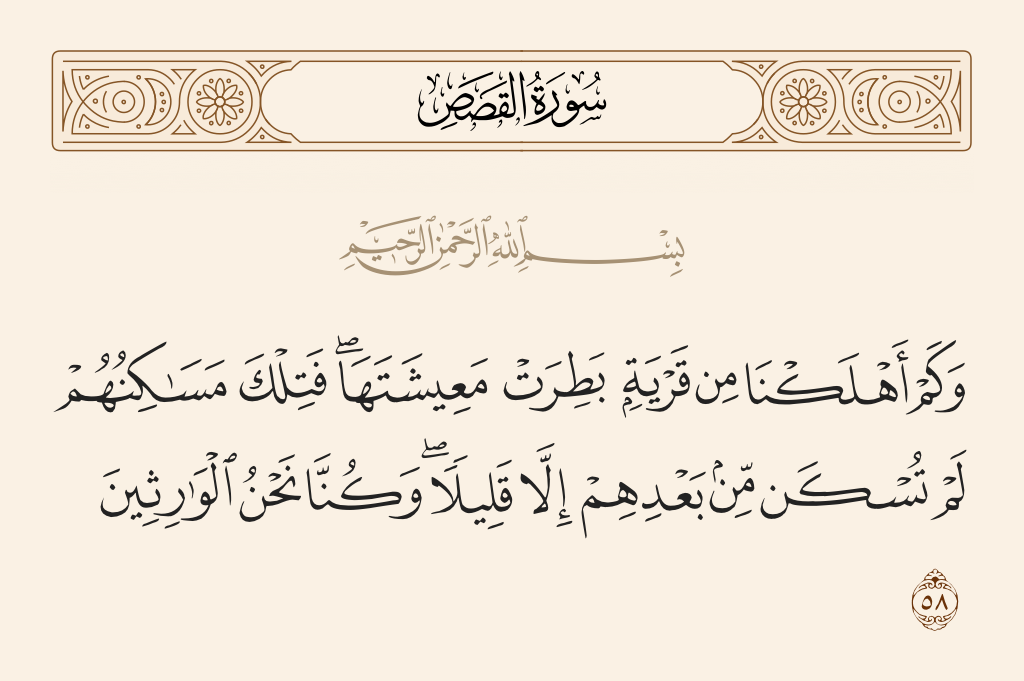 سُورَةُ القَصَصِ
بِسْمِ ٱللَّهِ ٱلرَّحْمَٰنِ ٱلرَّحِيمِ
وَكَمْ أَهْلَكْنَا مِن قَرْيَةٍۭ بَطِرَتْ مَعِيشَتَهَا ۖ فَتِلْكَ مَسَـٰكِنُهُمْ
لَمْ تُسْكَن مِّنۢ بَعْدِهِمْ إِلَّا قَلِيلًا ۖ وَكُنَّا نَحْنُ ٱلْوَٰرِثِينَ
٥٨